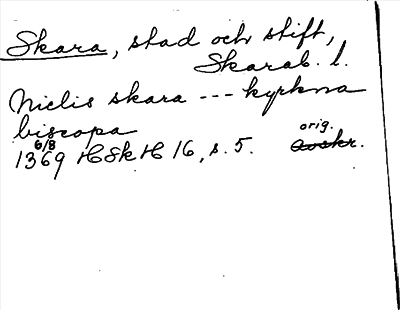 Skara, stad och stift,
Skarab. l.
Niclis skara --- kyrkna
biscopa
6/8 1369 HSkH 16, s. 5. orig. Avskr.